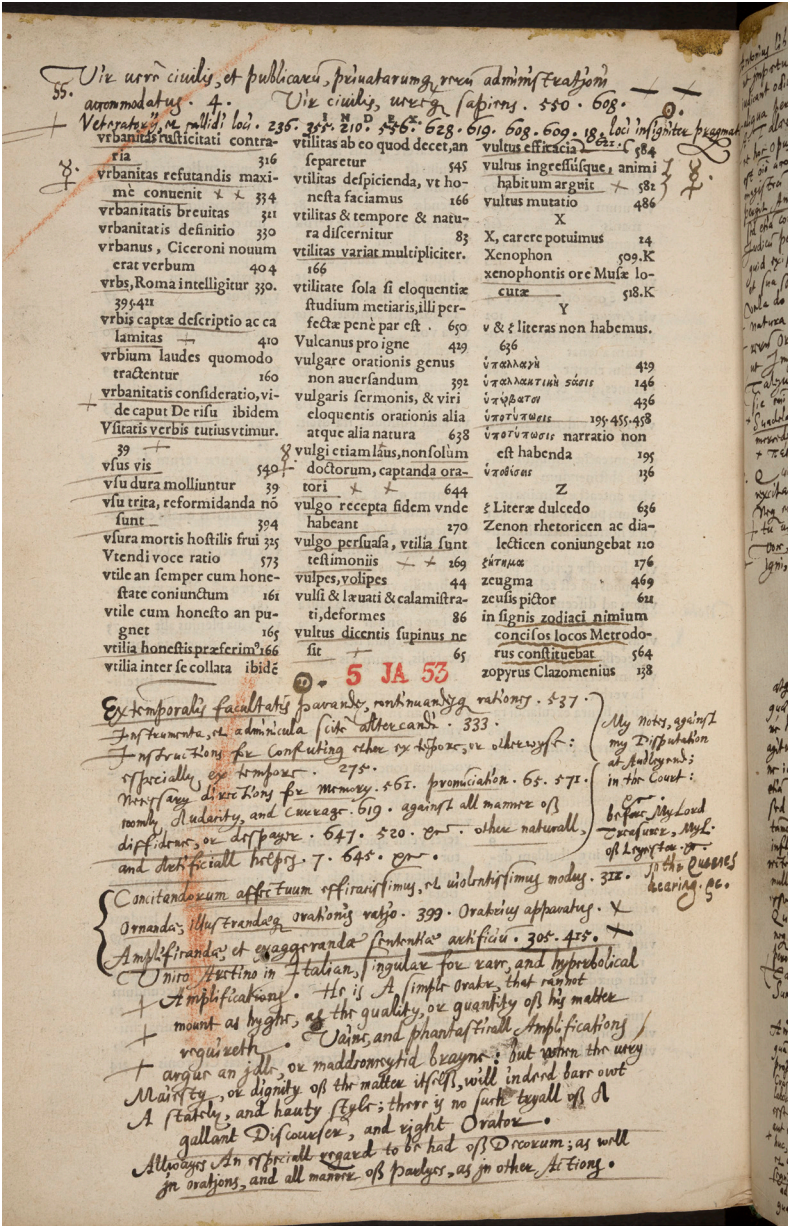 Vir verè civilis, et publicarū, privatarumq́ rerū administrationi
55.
accommodatus . 4 . Vir civilis, vereq́ sapiens . 550 . 608 .
Veteratorij, et callidi loci . 236 . 355 . 210 . 556 . 628 . 619 . 608 . 609 . 18 . loci insigniter pragmat
INDEX
vrbanitas rusticitati contra-
ria 316
vrbanitas refutandis maxi-
mè conuenit 334
vrbanitatis breuitas 321
vrbanitatis definitio 330
vrbanus, Ciceroni nouum
erat verbum 404
vrbs, Roma intelligitur 330.
395.421
vrbis captæ descriptio ac ca
lamitas 410
vrbium laudes quomodo
tractentur 160
vrbanitatis consideratio, vi-
de caput De risu ibidem
Vsitatis verbis tutius vtimur.
39
vsus vis 540
vsu dura molliuntur 39
vsu trita, reformidanda nō
sunt 394
vsura mortis hostilis frui 325
Vtendi voce ratio 573
vtile an semper cum hone-
state coniunctum 161
vtile cum honesto an pu-
gnet 165
vtilia honestis præferim⁹ 166
vtilia inter se collata ibidē
vtilitas ab eo quod decet, an
separetur 545
vtilitas despicienda, vt ho-
nesta faciamus 166
vtilitas & tempore & natu-
ra discernitur 83
vtilitas variat multipliciter.
166
vtilitate sola si eloquentiæ
studium metiaris, illi per-
fectæ penè par est . 650
Vulcanus pro igne 429
vulgare orationis genus
non auersandum 392
vulgaris sermonis, & viri
eloquentis orationis alia
atque alia natura 638
vulgi etiam laus, non solùm
doctorum, captanda ora-
tori 644
vulgo recepta fidem vnde
habeant 270
vulgo persuasa, vtilia sunt
testimoniis 269
vulpes, volipes 44
vulsi & læuati & calamistra-
ti, deformes 86
vultus dicentis supinus ne
sit 65
vultus efficacia 621. 584
vultus ingressúsque, animi
habitum arguit 582
vultus mutatio 486
X
X, carere potuimus 24
Xenophon 509.K
xenophontis ore Musæ lo-
cutæ 518.K
Y
υ & ξ literas non habemus.
636
ὑπαλλαγὴ 429
ὑπαλλακτικὴ στάσις 146
ὑπέρβατον 436
ὑποτύπωσις 195.455.458
ὑποτύπωσις narratio non
est habenda 195
ὑπόθεσις 136
Z
ξ Literæ dulcedo 636
Zenon rhetoricen ac dia-
lecticen coniungebat 110
ζήτημα 176
zeugma 469
zeusis pictor 621
in signis zodiaci nimium
concisos locos Metrodo-
rus constituebat 564
zopyrus Clazomenius 138
5 JA 53
Extemporalis facultatis parandæ, continuandæq́ rationes . 537 .
Instrumenta, et adminicula scitè altercandi . 333 .
Instructions for Confuting ether ex tēpore, or otherwyse :
especially ex tempore . 275 .
Necessary directions for Memory . 561 . pronunciation . 65 . 571 .
coomly Audacity, and Currage . 619 . against all manner of
diffidence, or despayer . 647 . 520 . &c . other naturall,
and Artificiall helpes . 7 . 645 . &c .
My Notes, against
my Disputation
at Audley end;
in the Court :
before My Lord
Treasurer, My L.
of Leycester . &c.
In the Queenes
hearing . &c .
Concitandorum affectuum efficacissimus, et violentissimus modus . 312 .
Ornandæ, illustrandæq́ orationis ratio . 399 . Oratorius apparatus .
Amplificandæ, et exaggerandæ sententiæ artificiū . 305 . 415 .
Unico Aretino in Italian, singular for rare, and hyperbolical
Amplifications . He is A simple Orator, that cannot
mount as hyghe, as the quality, or quantity of his matter
requireth . Vaine, and phantasticall Amplifications
argue an idle, or maddconceytid brayne : but when the very
Maiesty, or dignity of the matter itself, will indeed bare owt
A stately, and hauty style; there is no such tryall of A
gallant Discourser, and right Orator .
Allwayes An especiall regard to be had of Decorum; as well
in orations, and all manner of parlyes, as in other Actions .